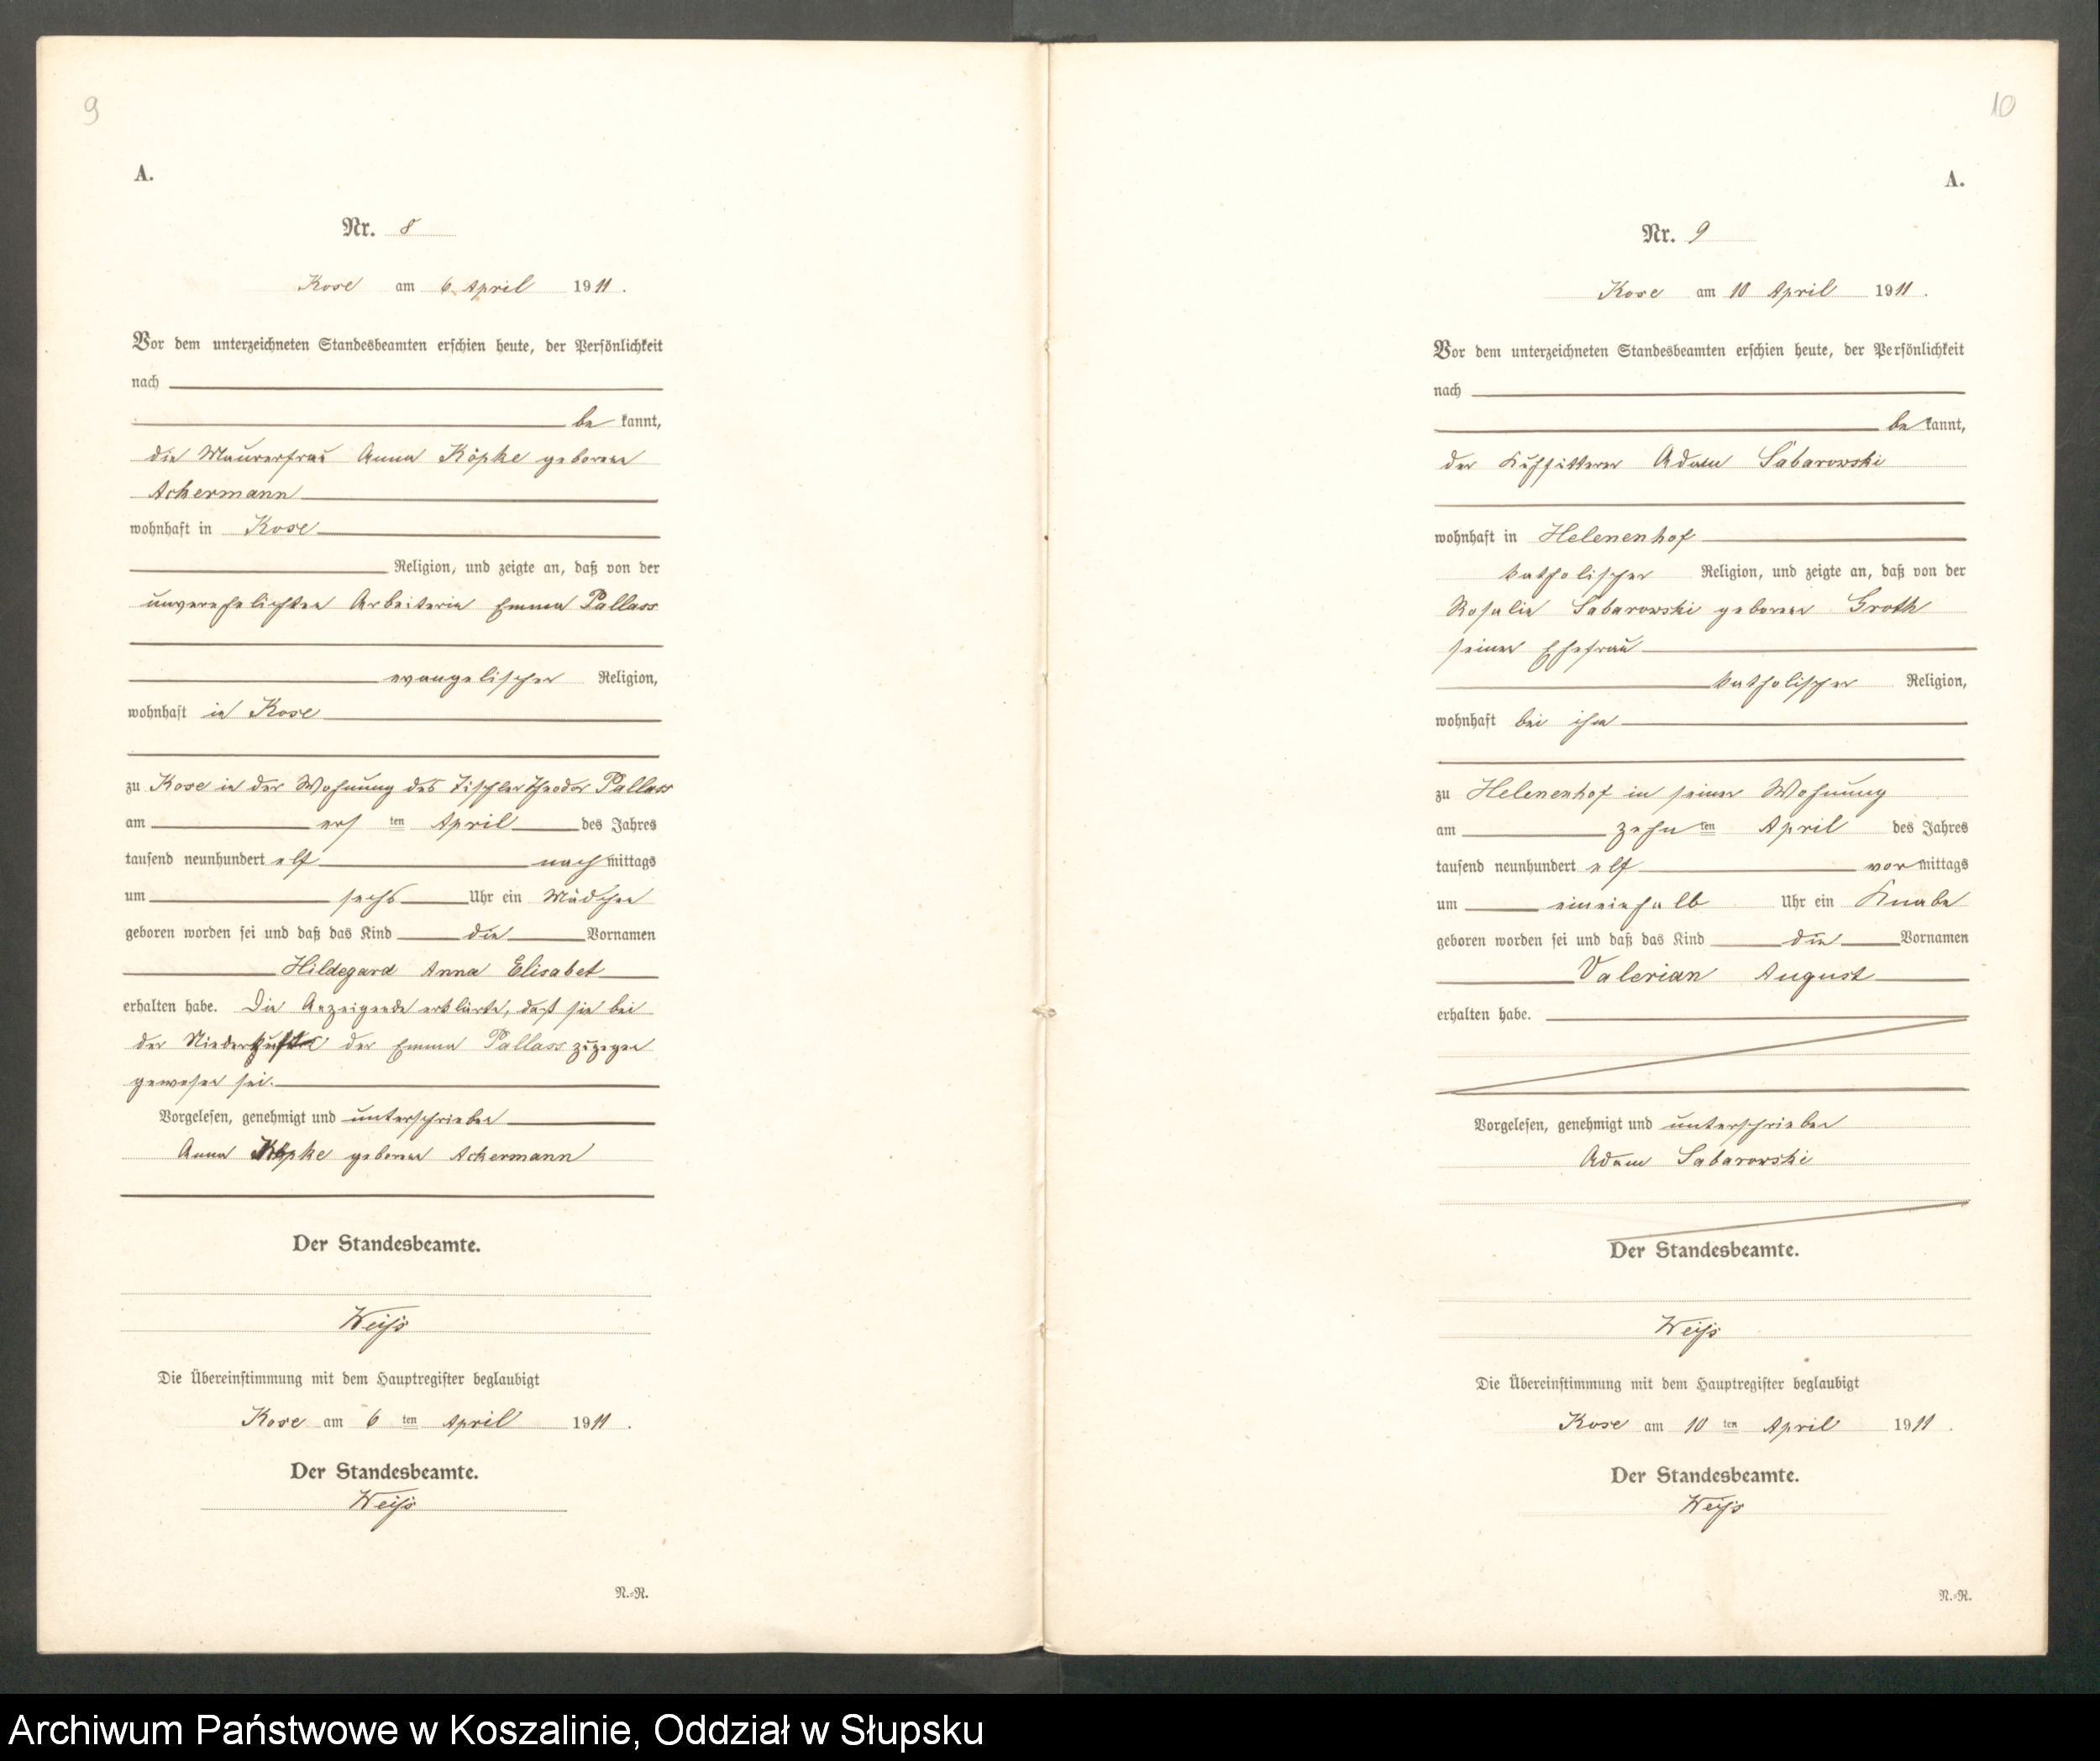 9
A.
Nr. 8
Kose am 6. April 1911.
Vor dem unterzeichneten Standesbeamten erschien heute, der Persönlichkeit
nach
be kannt,
die Maurerfrau Anna Köpke geborene
Ackermann
wohnhaft in Kose
Religion, und zeigte an, daß von der
unverehelichten Arbeiterin Emma Pallass
evangelischer Religion,
wohnhaft in Kose
zu Kose in der Wohnung des Tischler Theodor Pallass
am ersten April des Jahres
tausend neunhundert elf nachmittags
um sechs Uhr ein Mädchen
geboren worden sei und daß das Kind die Vornamen
Hildegard Anna Elisabet
erhalten habe. Die Anzeigende erklärte, daß sie bei
der der Emma Pallass zugegen
gewesen sei.
Vorgelesen, genehmigt und unterschrieben
Anna Köpke geborene Ackermann
Der Standesbeamte.
Weiß
Die Übereinstimmung mit dem Hauptregister beglaubigt
Kose am 6 ten April 1911.
Der Standesbeamte.
Weiß
N.=R.
10
A.
Nr. 9
Kose am 10 April 1911.
Vor dem unterzeichneten Standesbeamten erschien heute, der Persönlichkeit
nach
be kannt,
der Adam Sabarowski
wohnhaft in Helenenhof
katholischer Religion, und zeigte an, daß von der
Rosalie Sabarowski geborene Groth
seiner Ehefrau
katholischer Religion,
wohnhaft bei ihm
zu Helenenhof in seiner Wohnung
am zehnten April des Jahres
tausend neunhundert elf vormittags
um eineinhalb Uhr ein Knabe
geboren worden sei und daß das Kind die Vornamen
Valerian August
erhalten habe.
Vorgelesen, genehmigt und unterschrieben
Adam Sabarowski
Der Standesbeamte.
Weiß
Die Übereinstimmung mit dem Hauptregister beglaubigt
Kose am 10 ten April 1911.
Der Standesbeamte.
Weiß
N.=R.
Archiwum Państwowe w Koszalinie, Oddział w Słupsku